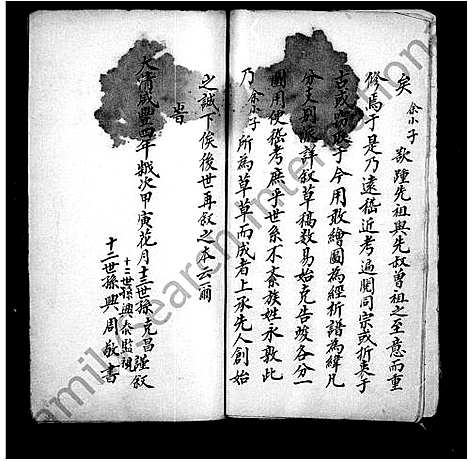 矣 余小子 欲踵先祖與先叔曾祖之至意而重
修焉于是乃遠稽近考遍閱同宗或折衷于
古或 于今用敢繪圖為經析譜為緯凡
分支別派詳叙草稿数易始克告竣各分一
圖用便稽考庶乎世系不紊族姓永敦此
乃 余小子 所為草草而成者上承先人創始
之誠下俟後世再叙之本云爾
旹
大清咸豐四年歲次甲寅花月十三世孫克昌謹叙
十二世孫興泰監視
十二世孫興周敬書
Family Search International